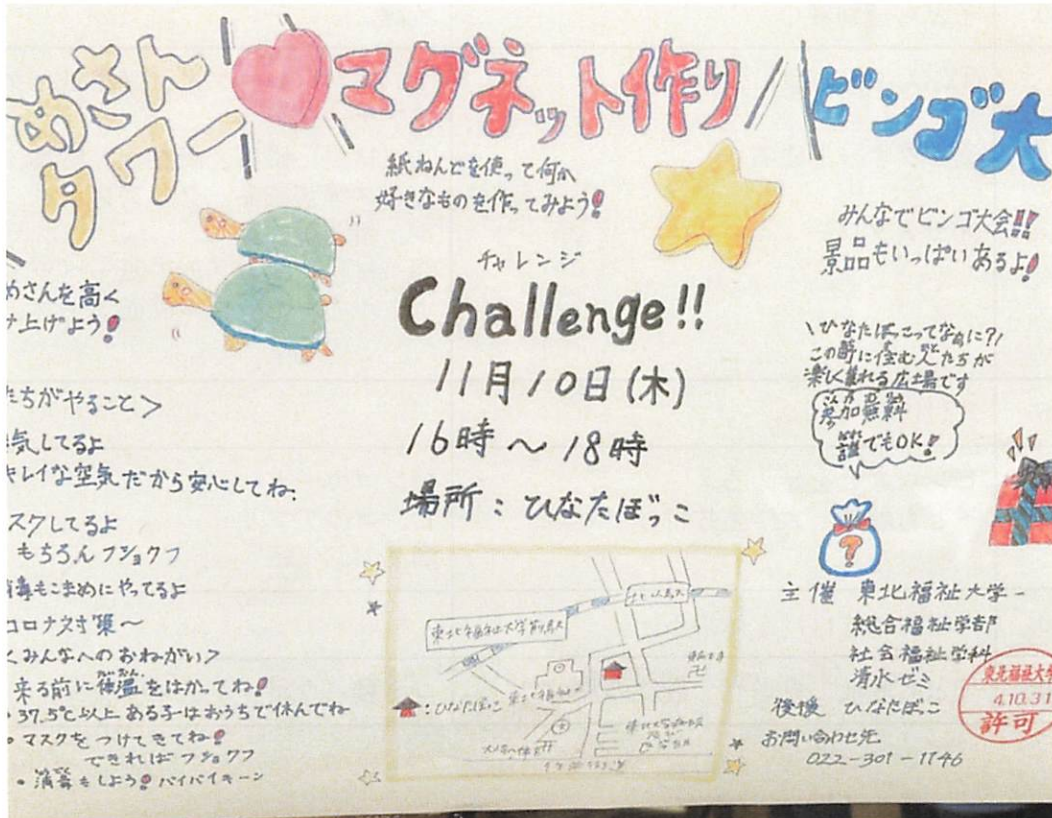 めさん
タワー
マグネット作り
ビンゴ大
紙ねんどを使って何か
好きなものを作ってみよう!
めさんを高く
上げよう!
チャレンジ
Challenge!!
11月10日(木)
16時~18時
場所:ひなたぼっこ
みんなでビンゴ大会!!
景品もいっぱいあるよ!
\ひなたぼっこってなぁに?!/
この町に住む人たちが
楽しく集れる広場です
さんかむりょう
参加無料
だれ
誰でもOK!
たちがやること>
気してるよ
キレイな空気だから安心してね。
スクしてるよ
もちろんフショクフ
毒もこまめにやってるよ
コロナ対策~
<みんなへのおねがい>
来る前に体温をはかってね!
・37.5℃以上ある子はおうちで休んでね
・マスクをつけてきてね!
できればフショクフ
・消毒もしよう!バイバイキーン
東北福祉大学前駅
:ひなたぼっこ
主催 東北福祉大学
総合福祉学部
社会福祉学科
清水ゼミ
後援 ひなたぼっこ
お問い合わせ先
022-301-1146
東北福祉大学
4.10.31
許可